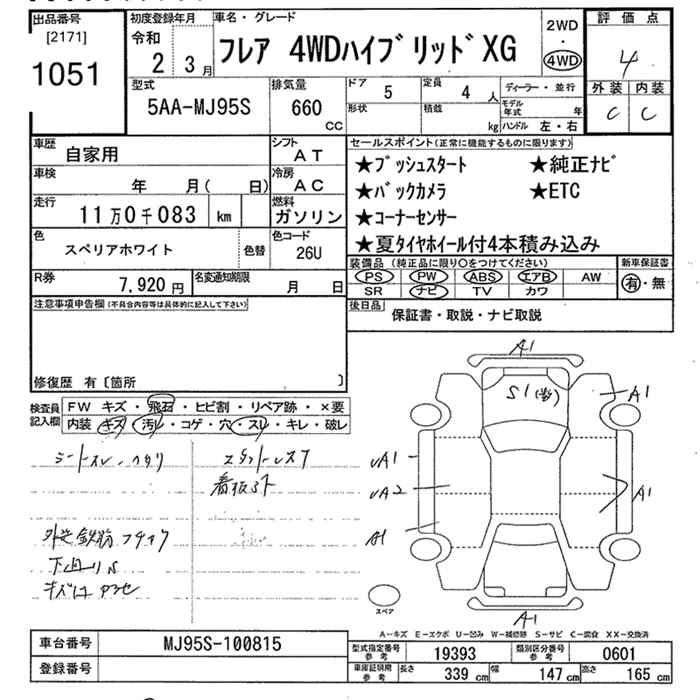 出品番号
[2171]
1051
初度登録年月
令和
2 3月
車名・グレード
フレア 4WDハイブリッドXG
2WD
・
4WD
評価点
4
外装 内装
C C
型式
5AA-MJ95S
排気量
660
CC
ドア
5
定員
4 人
ディーラー・並行
形状
積載
kg
モデル年式
年
ハンドル 左・右
車歴
自家用
シフト
AT
車検
年 月( 日)
冷房
AC
走行
11万0千083 km
燃料
ガソリン
色
スペリアホワイト
色替
色コード
26U
R券
7,920円
名変通知期限
月 日
セールスポイント(正常に機能するものに限ります)
★プッシュスタート ★純正ナビ
★バックカメラ ★ETC
★コーナーセンサー
★夏タイヤホイール付4本積み込み
装備品 (純正品に限り○をつけてください)
PS PW ABS エアB AW
SR ナビ TV カワ
新車保証書
有・無
後日品
保証書・取説・ナビ取説
注意事項申告欄(不具合内容等は具体的に記入して下さい)
修復歴 有〔箇所 〕
検査員記入欄
FW キズ・飛石・ヒビ割・リペア跡・×要
内装 キズ・汚レ・コゲ・穴・スレ・キレ・破レ
シートスレ・ヘタリ
下回りS
A1
S1
A1
A1
A2
A1
A1
A1
スペア
A-キズ E-エクボ U-凹み W-補修跡 S-サビ C-腐食 XX-交換済
車台番号
MJ95S-100815
登録番号
型式指定番号 参考
19393
類別区分番号 参考
0601
車庫証明用 参考
長さ 339cm 幅 147cm 高さ 165cm